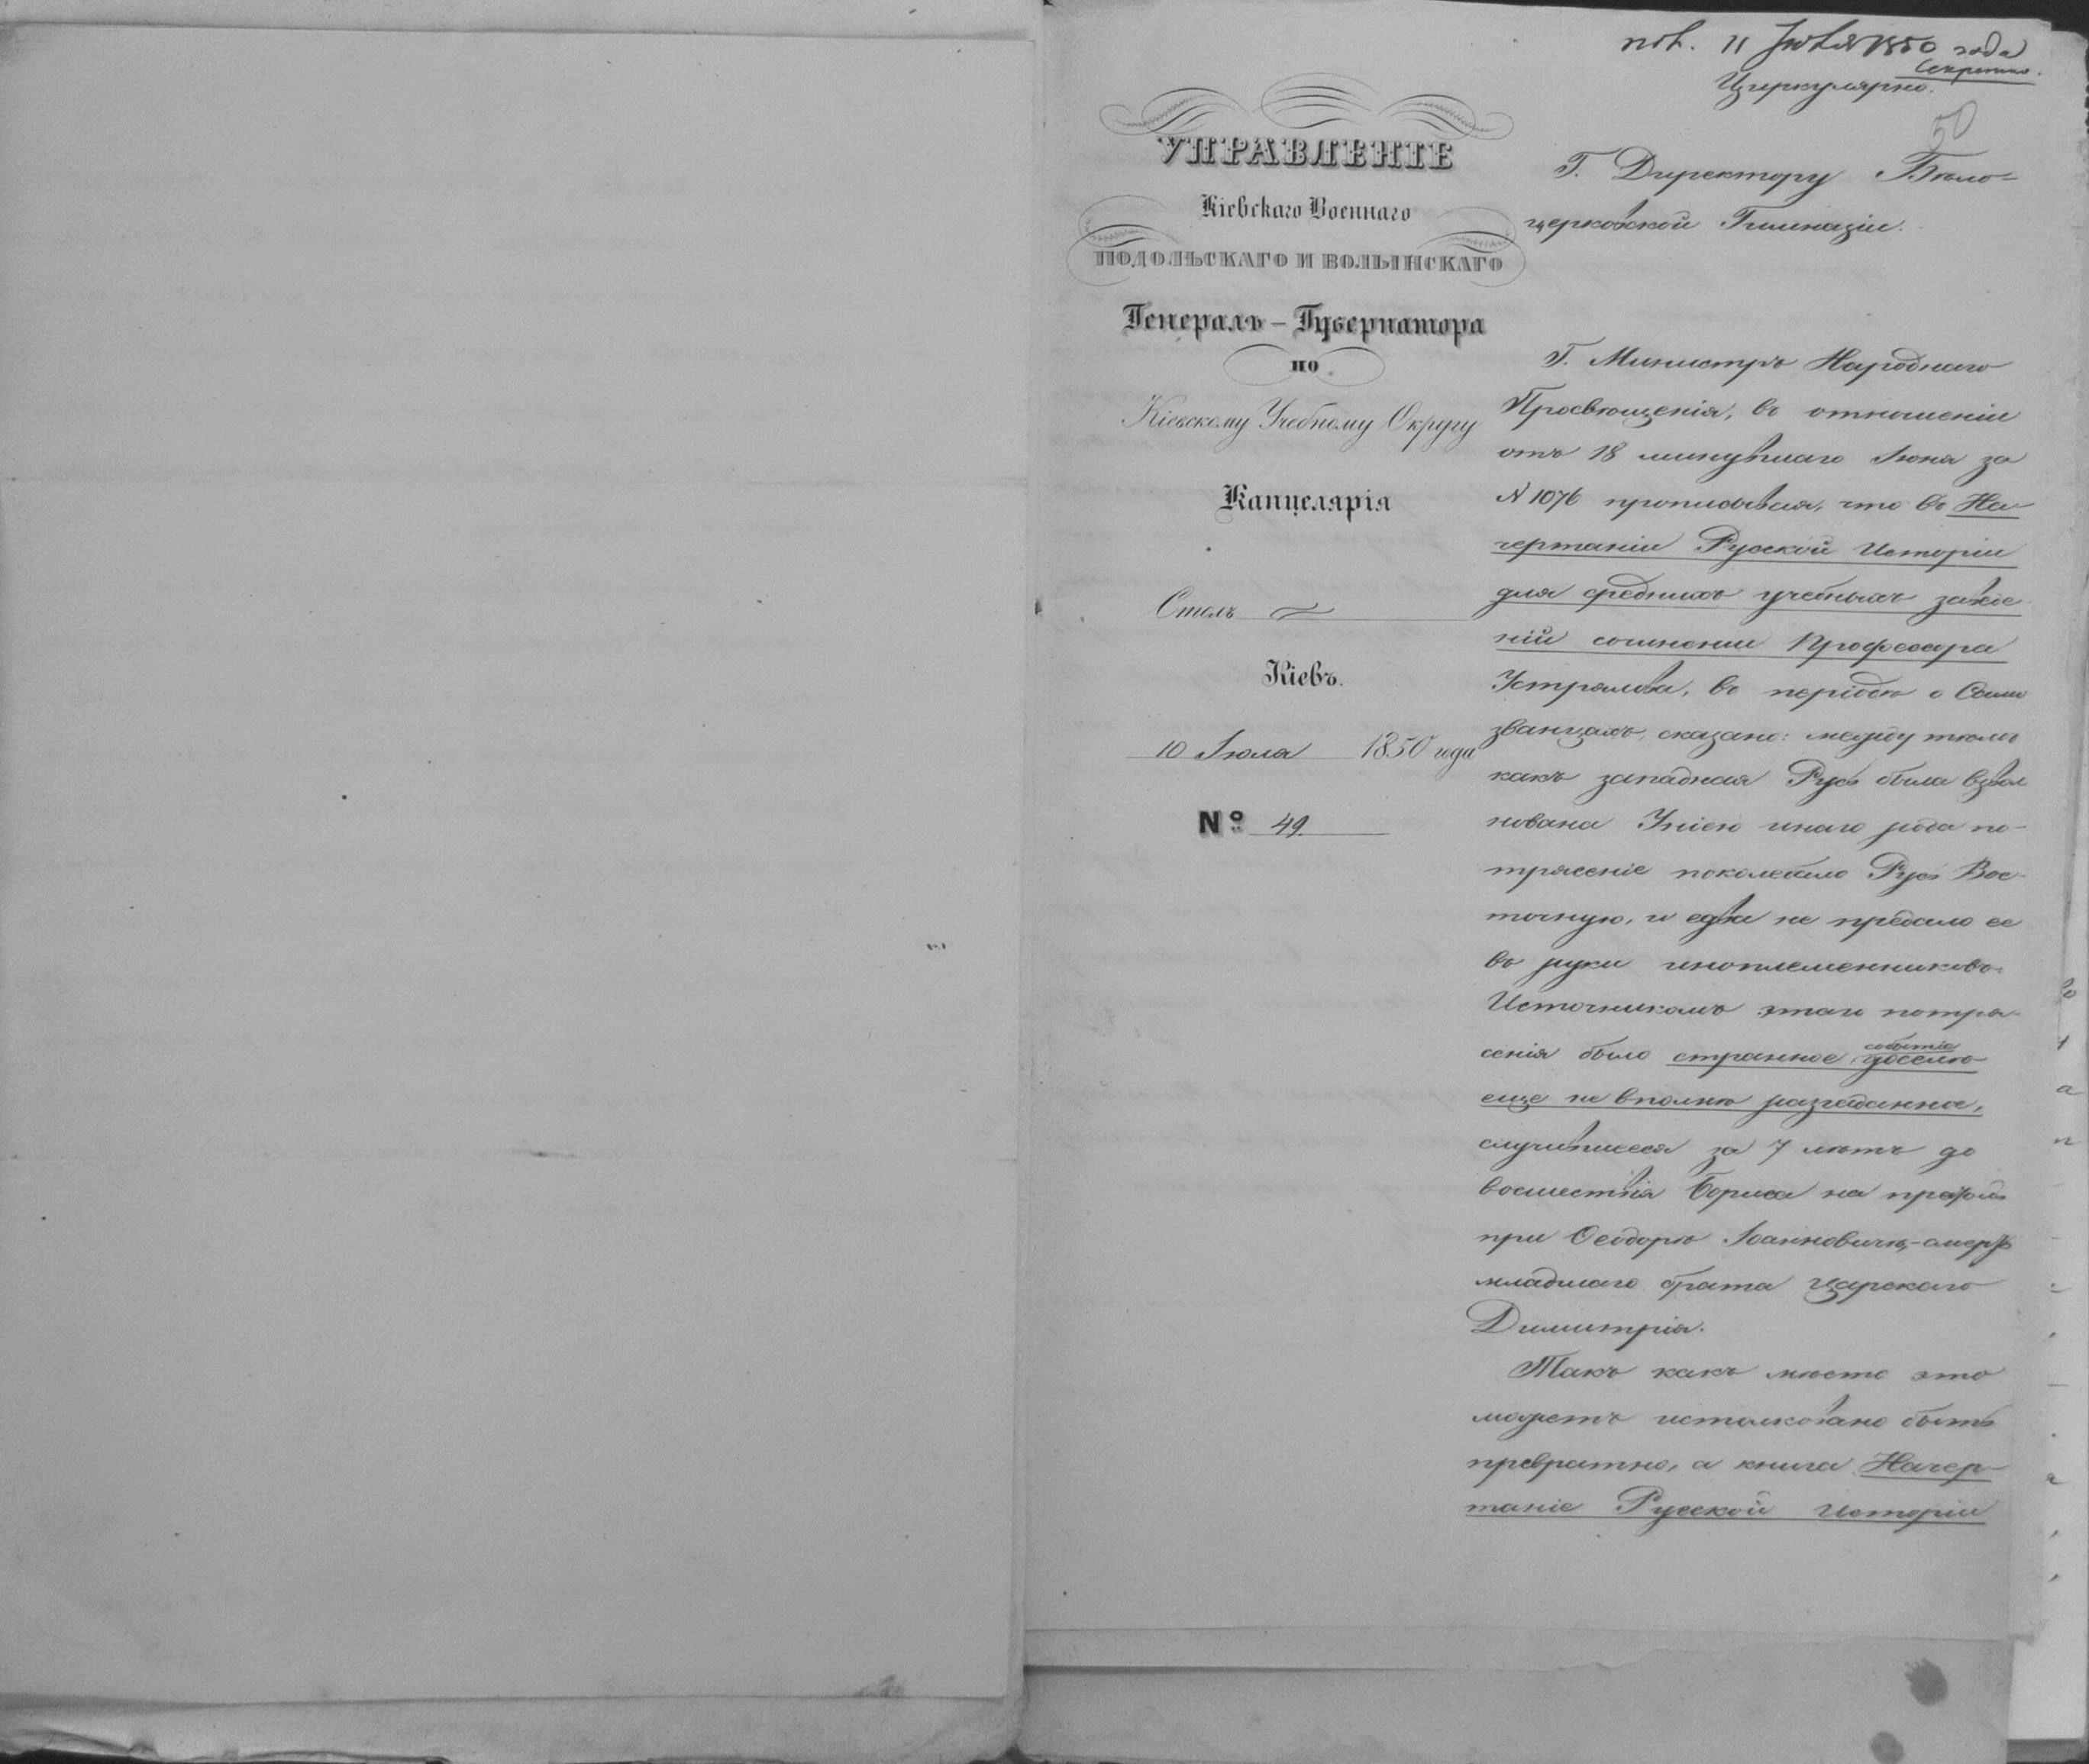 пол. 11 Іюля 1850 года
Секретно.
Циркулярно.
50
УПРАВЛЕНІЕ
Кіевскаго Военнаго
ПОДОЛЬСКАГО И ВОЛЫНСКАГО
Генералъ-Губернатора
по
Кіевскому Учебному Округу
Канцелярія
Столъ
Кіевъ.
10 Іюля 1850 года
№ 49.
Г. Директору Бѣло-
церковской Гимназіи.
Г. Министръ Народнаго
Просвѣщенія, въ отношеніи
отъ 18 минувшаго Іюня за
N 1076 прописывая, что въ На-
чертаніи Русской Исторіи
для среднихъ учебныхъ заведе
ній сочиненіи Профессора
Устрялова, въ періодѣ о Само
званцахъ, сказано: между тѣмъ
какъ западная Русь была взвол
нована Уніею инаго рода по-
трясеніе поколебало Русь Вос-
точную, и едва не предало ее
въ руки иноплеменниковъ.
Источникомъ этаго потря-
сенія было странное событіе, доселѣ
еще не вполнѣ разгаданное,
случившееся за 7 лѣтъ до
восшествія Бориса на престолъ
при Ѳеодорѣ Іоанновичѣ,-смерть
младшаго брата царскаго
Димитрія.
Такъ какъ мѣсто это
можетъ истолковано быть
превратно, а книга Начер-
таніе Русской Исторіи